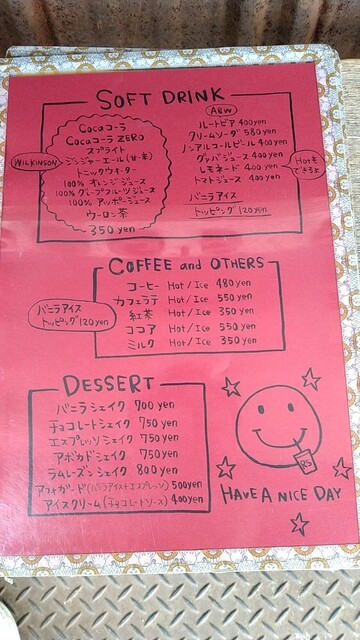 SOFT DRINK
Cocaコーラ
Cocaコーラ ZERO
スプライト
WILKINSON
ジンジャーエール(甘・辛)
トニックウォーター
100% オレンジジュース
100% グレープフルーツジュース
100% アップルジュース
ウーロン茶
350 yen
A&W
ルートビア 400yen
クリームソーダ 580yen
ノンアルコールビール 400yen
グァバジュース 400yen
レモネード 400yen
Hotも
できるよ
トマトジュース 400yen
バニラアイス
トッピング 120yen
COFFEE and OTHERS
コーヒー Hot/Ice 480yen
カフェラテ Hot/Ice 550yen
紅茶 Hot/Ice 350yen
ココア Hot/Ice 550yen
ミルク Hot/Ice 350yen
バニラアイス
トッピング120yen
DESSERT
バニラシェイク 700yen
チョコレートシェイク 750yen
エスプレッソシェイク 750yen
アボカドシェイク 750yen
ラムレーズンシェイク 800yen
アフォガード(バニラアイス+エスプレッソ) 500yen
アイスクリーム(チョコレートソース) 400yen
BS
HAVE A NICE DAY